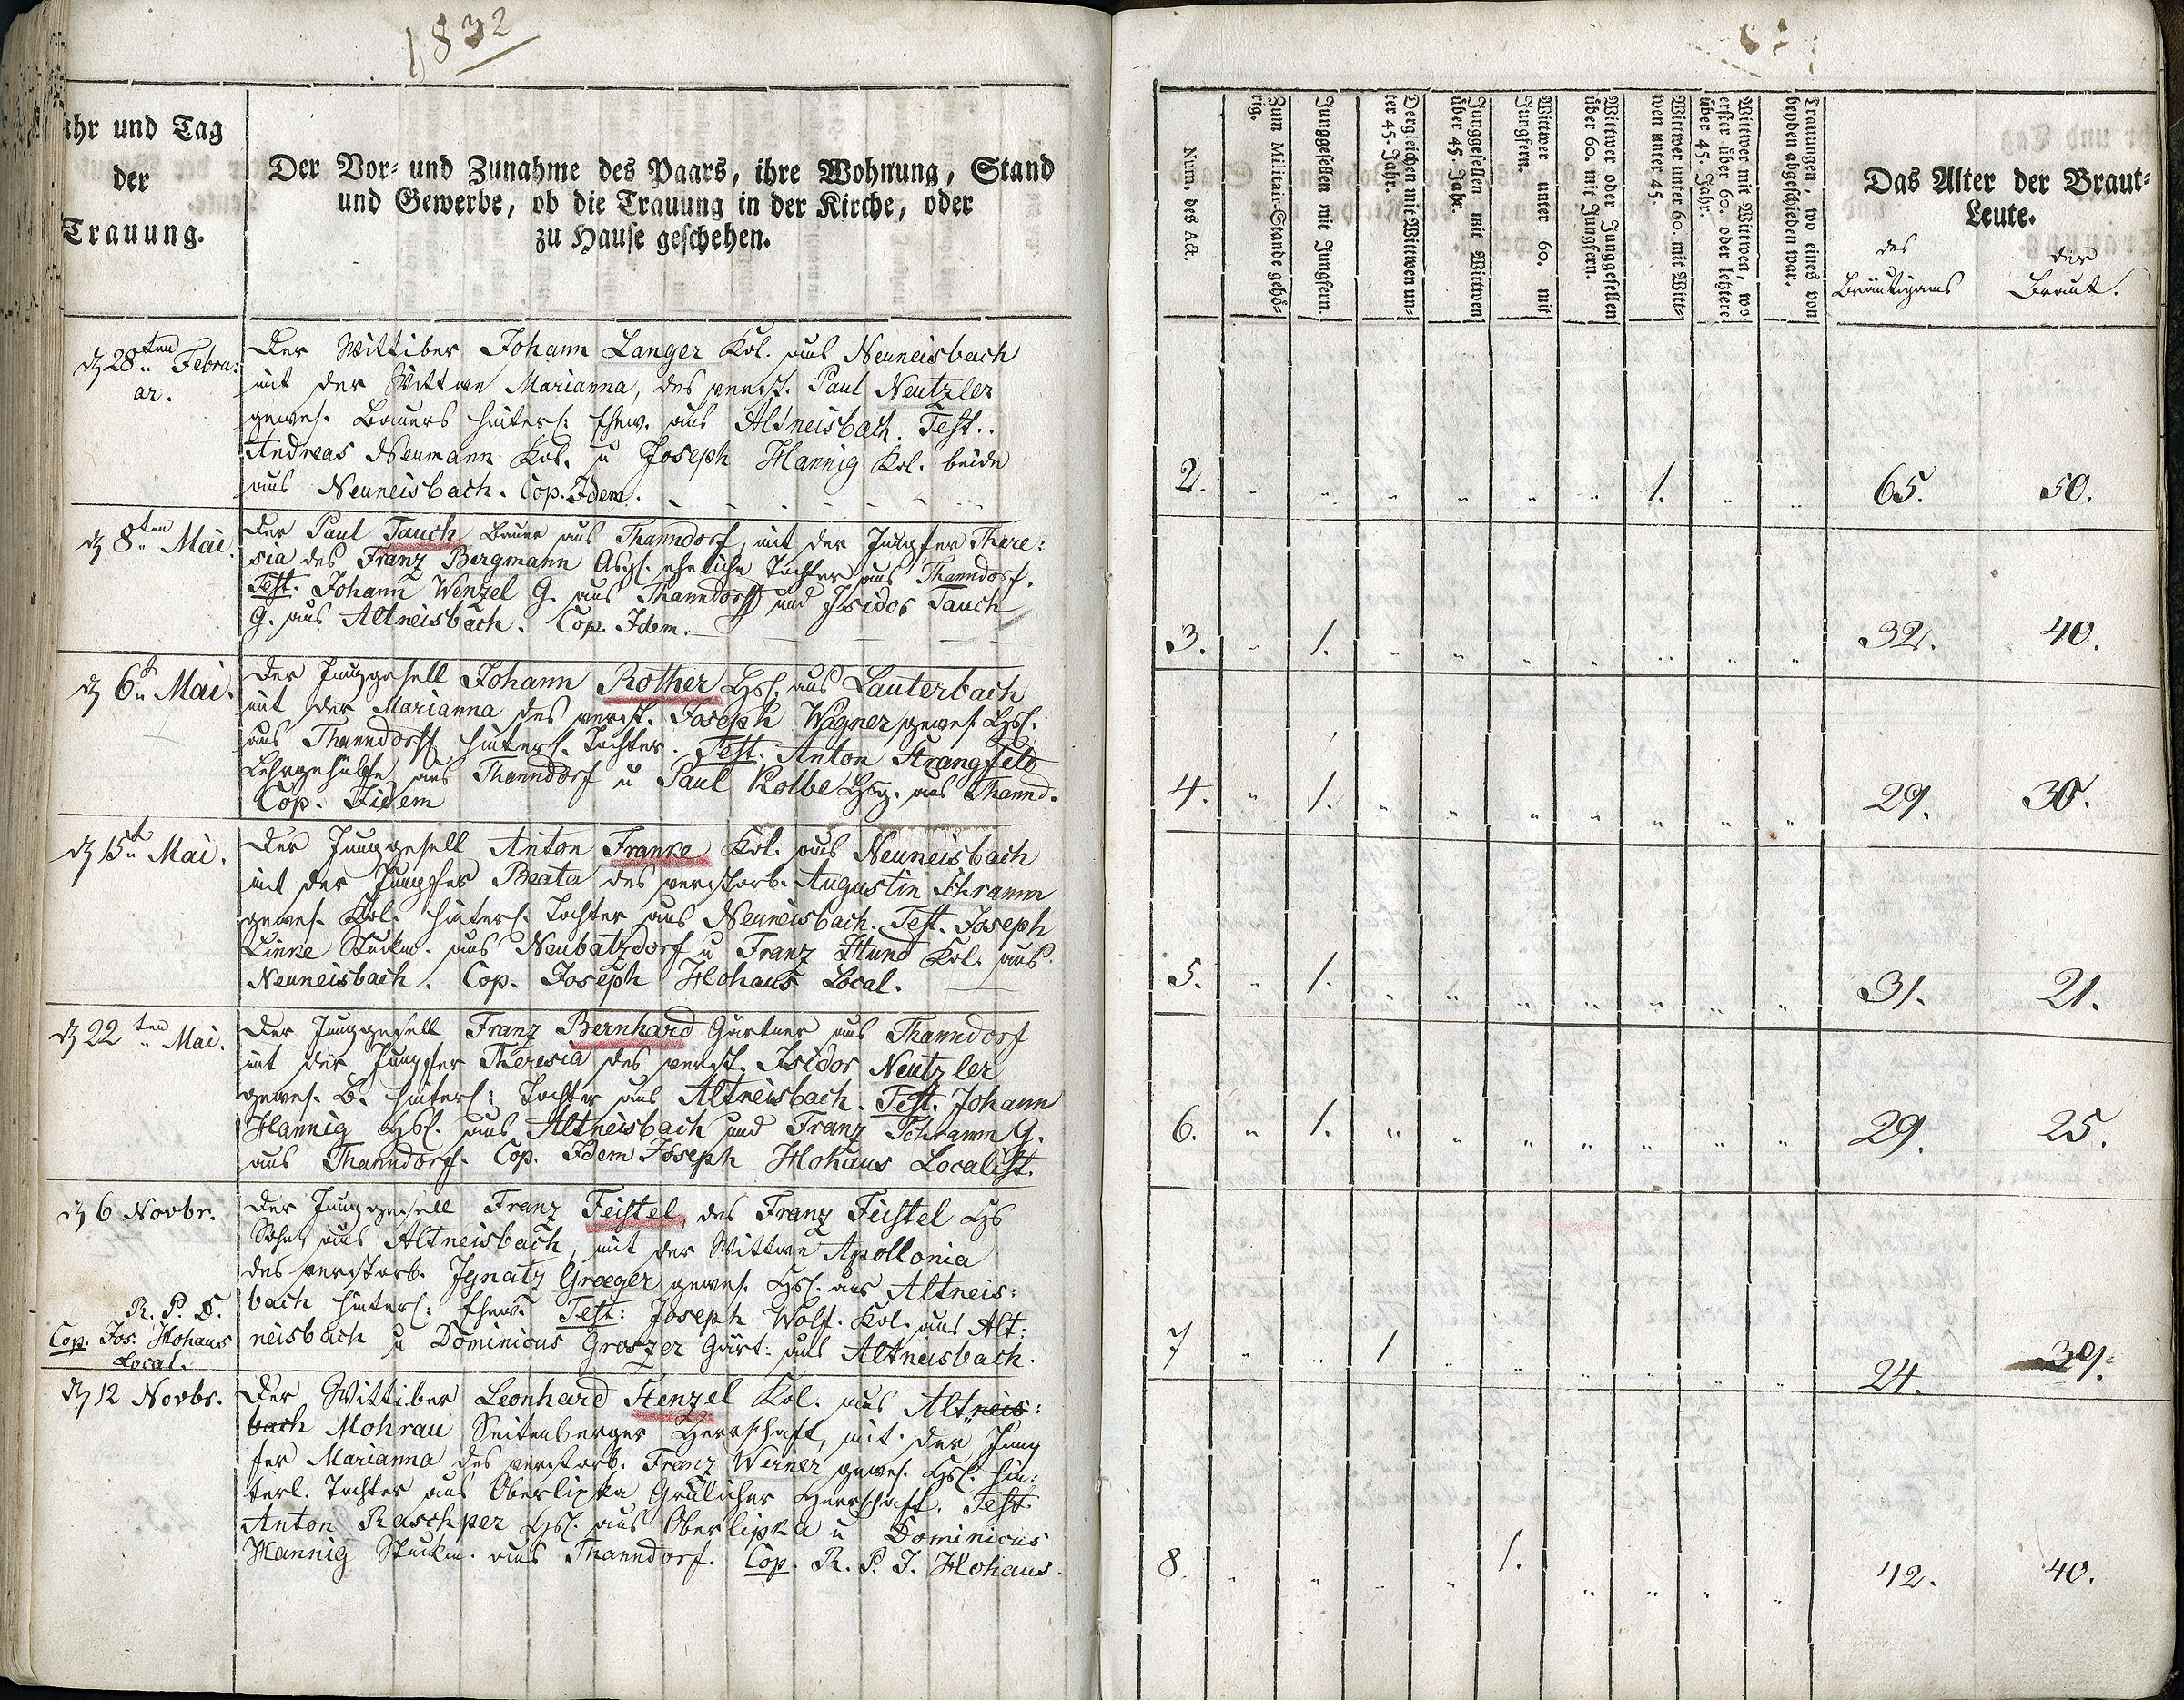 1832
Jahr und Tag
der
Trauung.
Der Vor- und Zunahme des Paars, ihre Wohnung, Stand
und Gewerbe, ob die Trauung in der Kirche, oder
zu Hause geschehen.
d 28ten Febru:
ar.
Der Wittiber Johann Langer Kol. aus Neuneisbach
mit der Wittwe Marianna, des verst. Paul Neutzler
gewes. Bauers hinterl: Ehew. aus Altneisbach. Test.
Andreas Neumann Kol. u Joseph Hannig Kol. beide
aus Neuneisbach. Cop. Idem.
d 8ten Mai.
Der Paul Tauch Bauer aus Thanndorf, mit der Jungfer There:
sia des Franz Bergmann eheliche Tochter aus Thanndorf.
Test. Johann Wenzel G. aus Thanndorff und Isidor Tauch
G. aus Altneisbach. Cop. Idem.
d 6t Mai.
Der Junggesell Johann Rother Hsl. aus Lauterbach
mit der Marianna des verst. Joseph Wagner gewes Hsl.
aus Thanndorff hinterl. Tochter. Test. Anton Strangfeld
Lehrgehülfe aus Thanndorf u Paul Kolbe Hsg. aus Thannd.
Cop. Iidem
d 15t Mai.
Der Junggesell Anton Franke Kol. aus Neuneisbach
mit der Jungfer Beata des verstorb. Augustin Schramm
gewes. Kol. hinterl. Tochter aus Neuneisbach. Test. Joseph
Linke Stückm. aus Neubatzdorf u Franz Hund Kol. aus
Neuneisbach. Cop. Joseph Hohaus Local.
d 22ten Mai.
Der Junggesell Franz Bernhard Gärtner aus Thanndorf
mit der Jungfer Theresia des verst. Isidor Neutzler
gewes. B. hinterl: Tochter aus Altneisbach. Test. Johann
Hannig Hsl. aus Altneisbach und Franz Schramm G.
aus Thanndorf. Cop. Idem Joseph Hohaus Localist.
d 6 Novbr.
Der Junggesell Franz Feistel, des Franz Feistel Hs
Sohn, aus Altneisbach, mit der Wittwe Apollonia
des verstorb. Ignatz Groeger gewes. Hsl. aus Altneis:
bach hinterl: Ehew. Test: Joseph Wolf. Kol. aus Alt:
neisbach u Dominicus Groszer Gärt: aus Altneisbach.
R. P. D.
Cop. Jos. Hohaus
Local.
d 12 Novbr.
Der Wittiber Leonhard Stenzel Kol. aus Altneis:
bach Mohrau Seitenberger Herrschaft, mit der Jung
fer Marianna des verstorb. Franz Werner gewes. Hsl. hin:
terl. Tochter aus Oberlipka Grulicher Herrschaft. Test.
Anton Raschper Hsl. aus Oberlipka u Dominicus
Hannig Stückm. aus Thanndorf. Cop. R. P. J. Hohaus.
Num. des Act.
Zum Militair-Stande gehö-
rig.
Junggesellen mit Jungfern.
Dergleichen mit Wittwen un-
ter 45. Jahr.
Junggesellen mit Wittwen
über 45. Jahr.
Wittwer unter 60. mit
Jungfern.
Wittwer oder Junggesellen
über 60. mit Jungfern.
Wittwer unter 60. mit Witt-
wen unter 45.
Wittwer mit Wittwen, wo
erster über 60. oder letztere
über 45. Jahr.
Trauungen, wo eines von
beyden abgeschieden war.
Das Alter der Braut-
Leute.
des
Bräutigams
der
Braut.
2. 1. 65. 50.
3. 1. 32. 40.
4. 1. 29. 30.
5. 1. 31. 21.
6. 1. 29. 25.
7 1 24. 39.
8. 1. 42. 40.